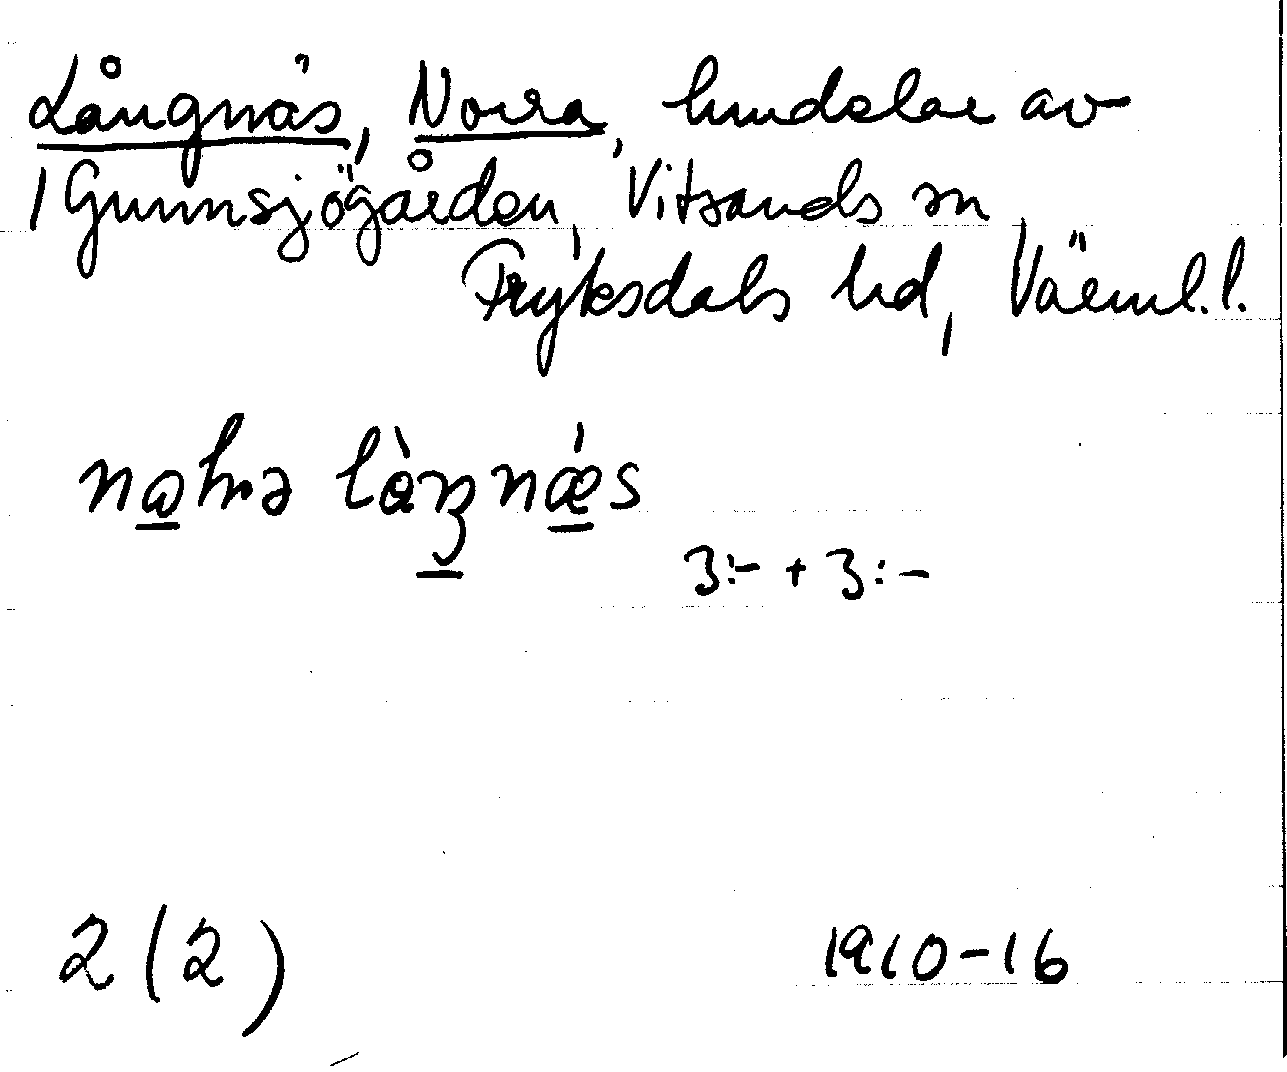 Långnäs, Norra, hmdelar av
1 Gunnsjögården, Vitsands sn
Fryksdals hd, Värml. l.
3:- + 3:-
2 (2)
1910-16